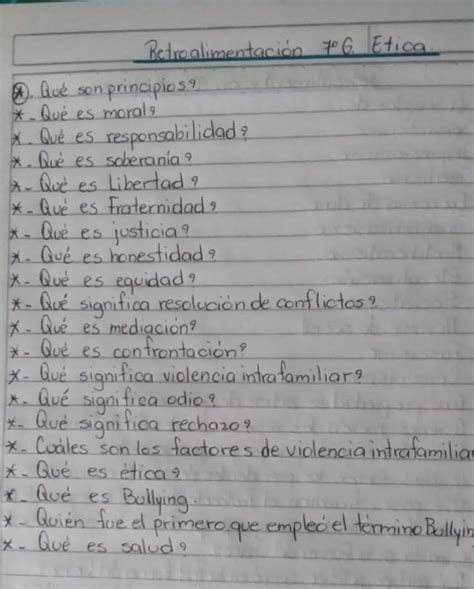 Retroalimentación 7º G. Etica.
*. Qué son principios?
*- Qué es moral?
*. Qué es responsabilidad?
*- Qué es soberanía?
*- Qué es Libertad?
*- Qué es Fraternidad?
*- Qué es justicia?
*. Qué es honestidad?
*- Qué es equidad?
*- Qué significa resolución de conflictos?
*- Qué es mediación?
*- Qué es confrontación?
*- Qué significa violencia intrafamiliar?
*. Qué significa odio?
*- Qué significa rechazo?
*- Cuáles son los factores de violencia intrafamilia
*- Qué es ética?
*- Qué es Bullying.
*- Quién fue el primero que empleó el término Bullyin
*- Qué es salud?